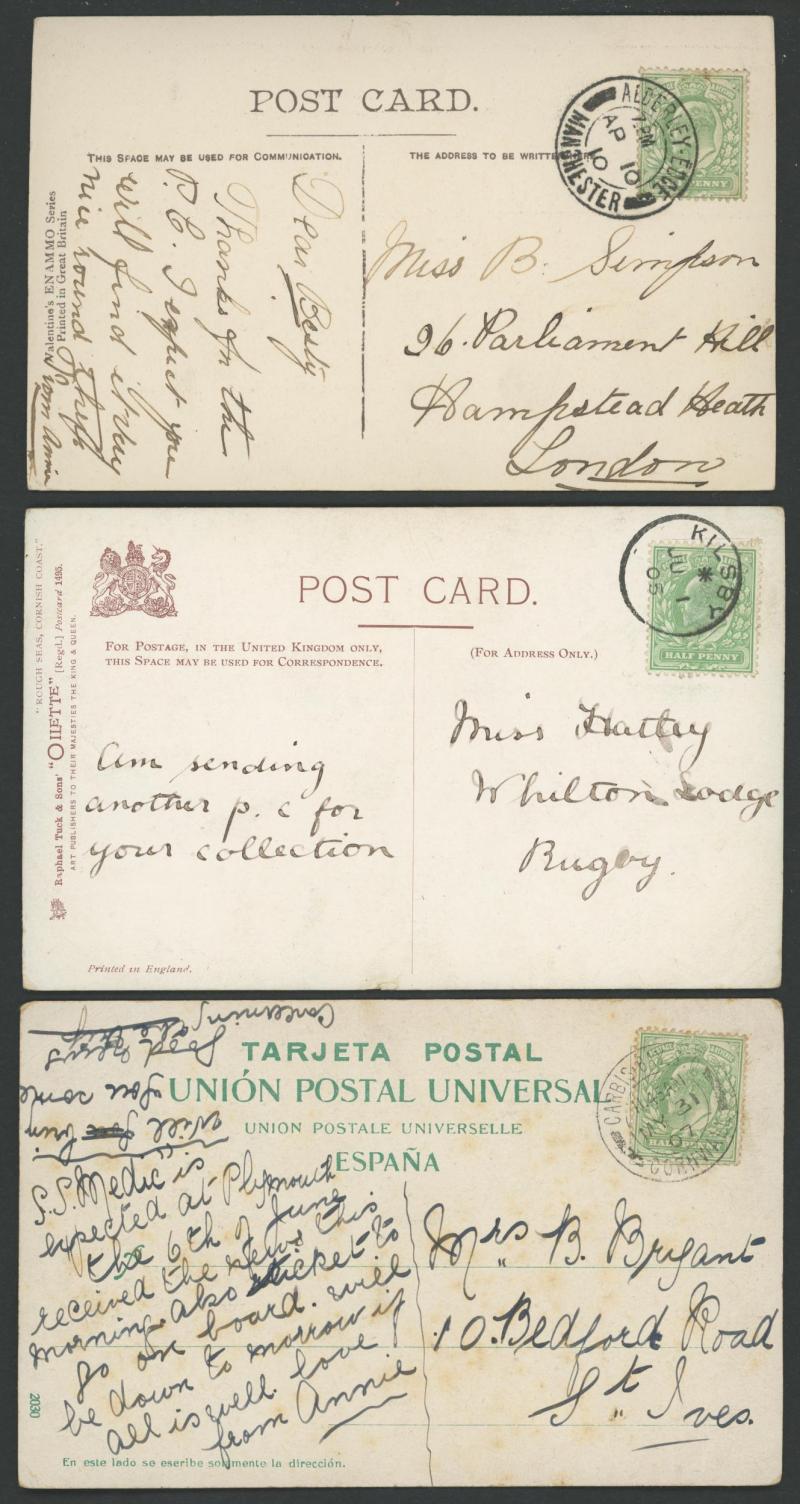 POST CARD.
THIS SPACE MAY BE USED FOR COMMUNICATION.
THE ADDRESS TO BE WRITTEN
ALDERLEY-EDGE
7. PM
AP 10
10
MANCHESTER
PENNY
Valentine's ENAMMO Series
Printed in Great Britain
Dear Besty
Thanks for the
P.C. I expect you
will find it very
nice round there
From Annie
Miss B. Simpson
26. Parliament Hill
Hampstead Heath
London
"ROUGH SEAS, CORNISH COAST."
Raphael Tuck & Sons' "OILETTE" [Regd.] Postcard 1495.
ART PUBLISHERS TO THEIR MAJESTIES THE KING & QUEEN.
POST CARD.
FOR POSTAGE, IN THE UNITED KINGDOM ONLY,
THIS SPACE MAY BE USED FOR CORRESPONDENCE.
(FOR ADDRESS ONLY.)
KILSBY
JU 1
05
HALF PENNY
am sending
another p. c for
your collection
Miss Hattey
Whilton Lodge
Rugby.
Printed in England.
TARJETA POSTAL
UNIÓN POSTAL UNIVERSAL
UNION POSTALE UNIVERSELLE
ESPAÑA
MY 31
07
S.S. Medic is
expected at Plymouth
the 6th of June
received the news this
morning also ticket to
go on board. will
be down to morrow if
all is well love
from Annie
will
you some
good news
Concerning
Mrs B. Bryant
10. Bedford Road
St Ives.
2030
En este lado se escribe solamente la dirección.